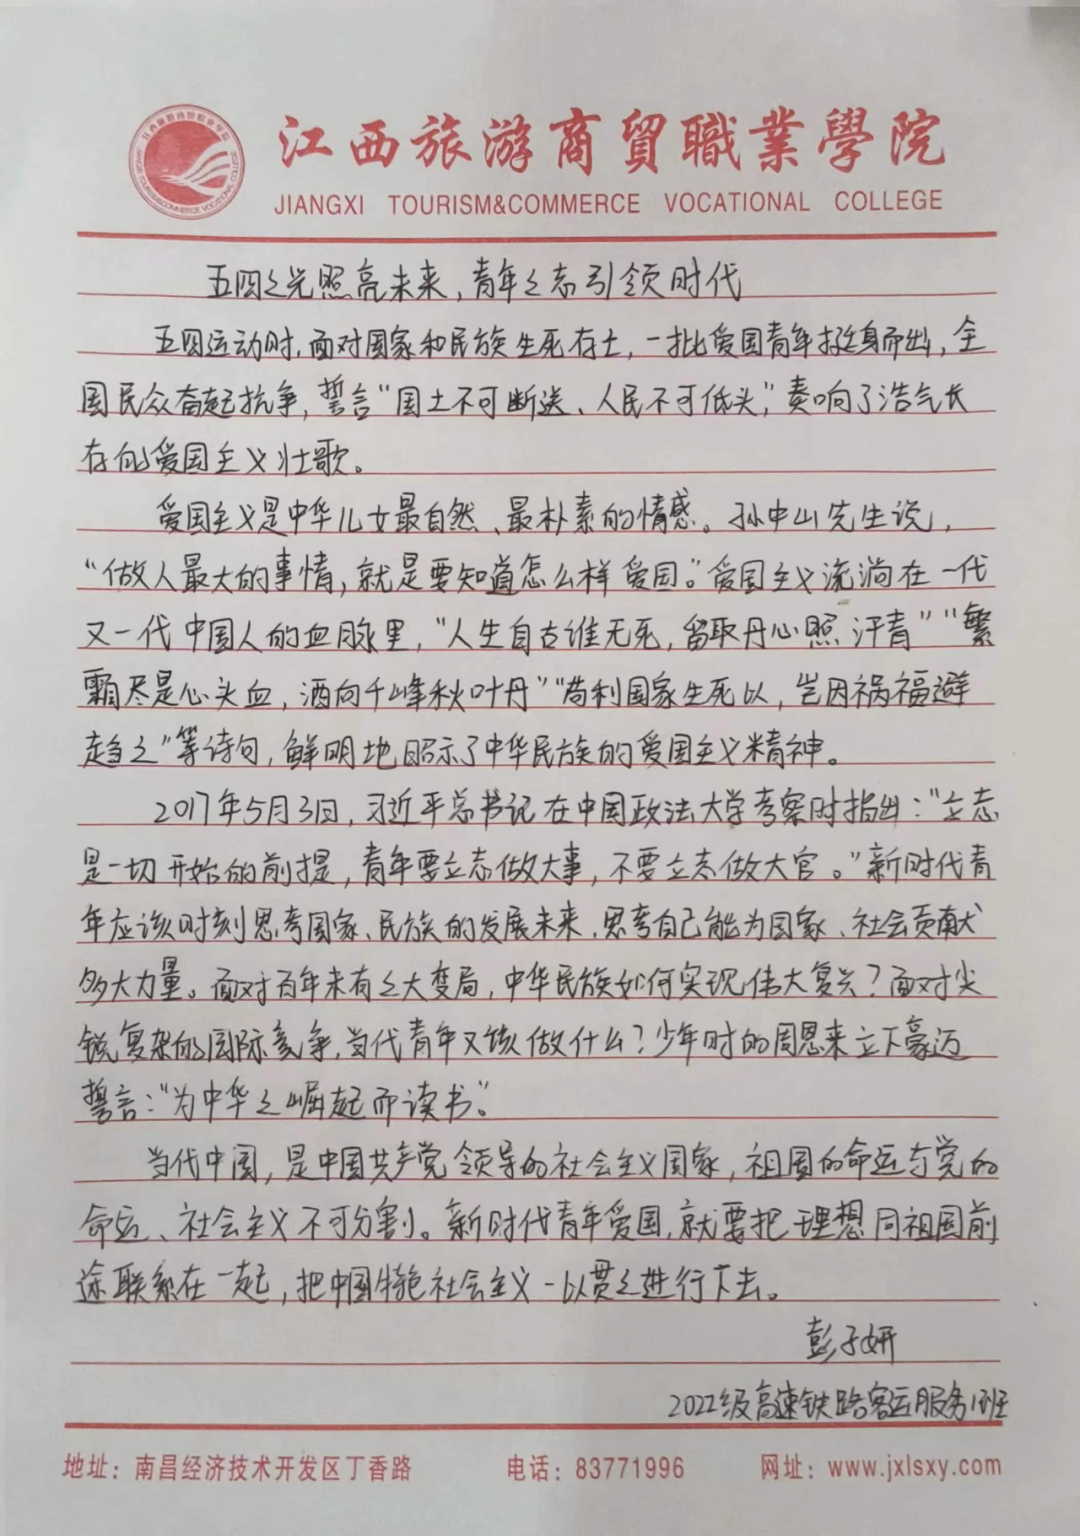 江西旅游商貿職業學院
JIANGXI TOURISM&COMMERCE VOCATIONAL COLLEGE
五四之光照亮未来,青年之志引领时代
五四运动时,面对国家和民族生死存亡,一批爱国青年挺身而出,全
国民众奋起抗争,誓言“国土不可断送、人民不可低头”,奏响了浩气长
存的爱国主义壮歌。
爱国主义是中华儿女最自然、最朴素的情感。孙中山先生说,
“做人最大的事情,就是要知道怎么样爱国。”爱国主义流淌在一代
又一代中国人的血脉里,“人生自古谁无死,留取丹心照汗青”“繁
霜尽是心头血,洒向千峰秋叶丹”“苟利国家生死以,岂因祸福避
趋之”等诗句,鲜明地昭示了中华民族的爱国主义精神。
2017年5月3日,习近平总书记在中国政法大学考察时指出:“立志
是一切开始的前提,青年要立志做大事,不要立志做大官。”新时代青
年应该时刻思考国家、民族的发展未来,思考自己能为国家、社会贡献
多大力量。面对百年未有之大变局,中华民族如何实现伟大复兴?面对尖
锐复杂的国际竞争,当代青年又该做什么?少年时的周恩来立下豪迈
誓言:“为中华之崛起而读书”。
当代中国,是中国共产党领导的社会主义国家,祖国的命运与党的
命运、社会主义不可分割。新时代青年爱国,就要把理想同祖国前
途联系在一起,把中国特色社会主义一以贯之进行下去。
彭子妍
2022级高速铁路客运服务1班
地址:南昌经济技术开发区丁香路 电话:83771996 网址:www.jxlsxy.com